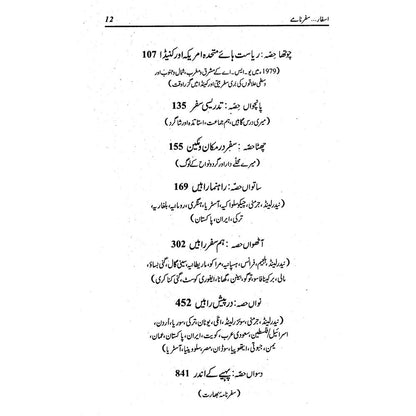 اسفار... سفرنامے 12
چوتھا حصّہ: ریاست ہائے متحدہ امریکہ اور کنیڈا 107
(1979ء میں یو۔ ایس۔ اے کے مشرق و مغرب، شمال و جنوب اور
وسطی علاقوں کی بری سفر بیتی اور کینیڈا میں گزرا وقت)
پانچواں حصّہ: تدریسی سفر 135
(میری درس گاہیں، ہم جماعت، استاد، اور شاگرد)
چھٹا حصّہ: سفر در مکان و مکین 155
(میرے محلے دار اور گرد و نواح کے لوگ)
ساتواں حصّہ: راہنما راہیں 169
(نیدرلینڈ، جرمنی، چیکوسلواکیہ، آسٹریا، ہنگری، رومانیہ، بلغاریہ،
ترکی، ایران، پاکستان)
آٹھواں حصہ: ہم سفر راہیں 302
(نیدرلینڈ، بلجیم، فرانس، ہسپانیہ، مراکو، ماریطانیہ، سینی گال، گنی بساؤ،
مالی، برکینا فاسو، ٹوگو، بینن، گھانا، ایوری کوسٹ، گنی کناکری)
نواں حصہ: درپیش راہیں 452
(نیدرلینڈ، جرمنی، سوئزرلینڈ، اٹلی، یونان، ترکی، سوریا، اردن،
اسرائیل/فلسطین، سعودی عرب، کویت، ایران، پاکستان، عمان،
یمن، جبوتی، ایتھوپیا، سوڈان، مصر، سلووینیا، آسٹریا)
دسواں حصّہ: پہیے کے اندر 841
(سفرنامۂ بھارت)